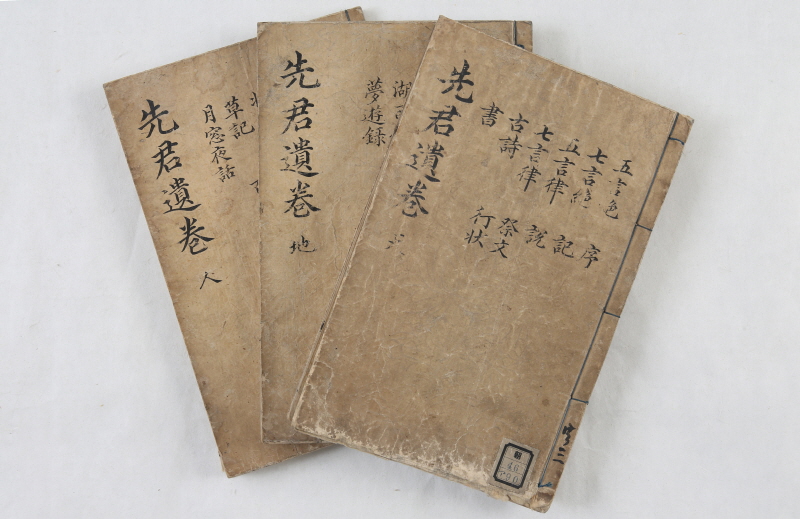 五言
七言絶 序
五言律 記
七言律 說
古詩 祭文
書 行狀
先君遺卷 天
湖
夢遊錄
先君遺卷 地
草記
月窓夜話
先君遺卷 人